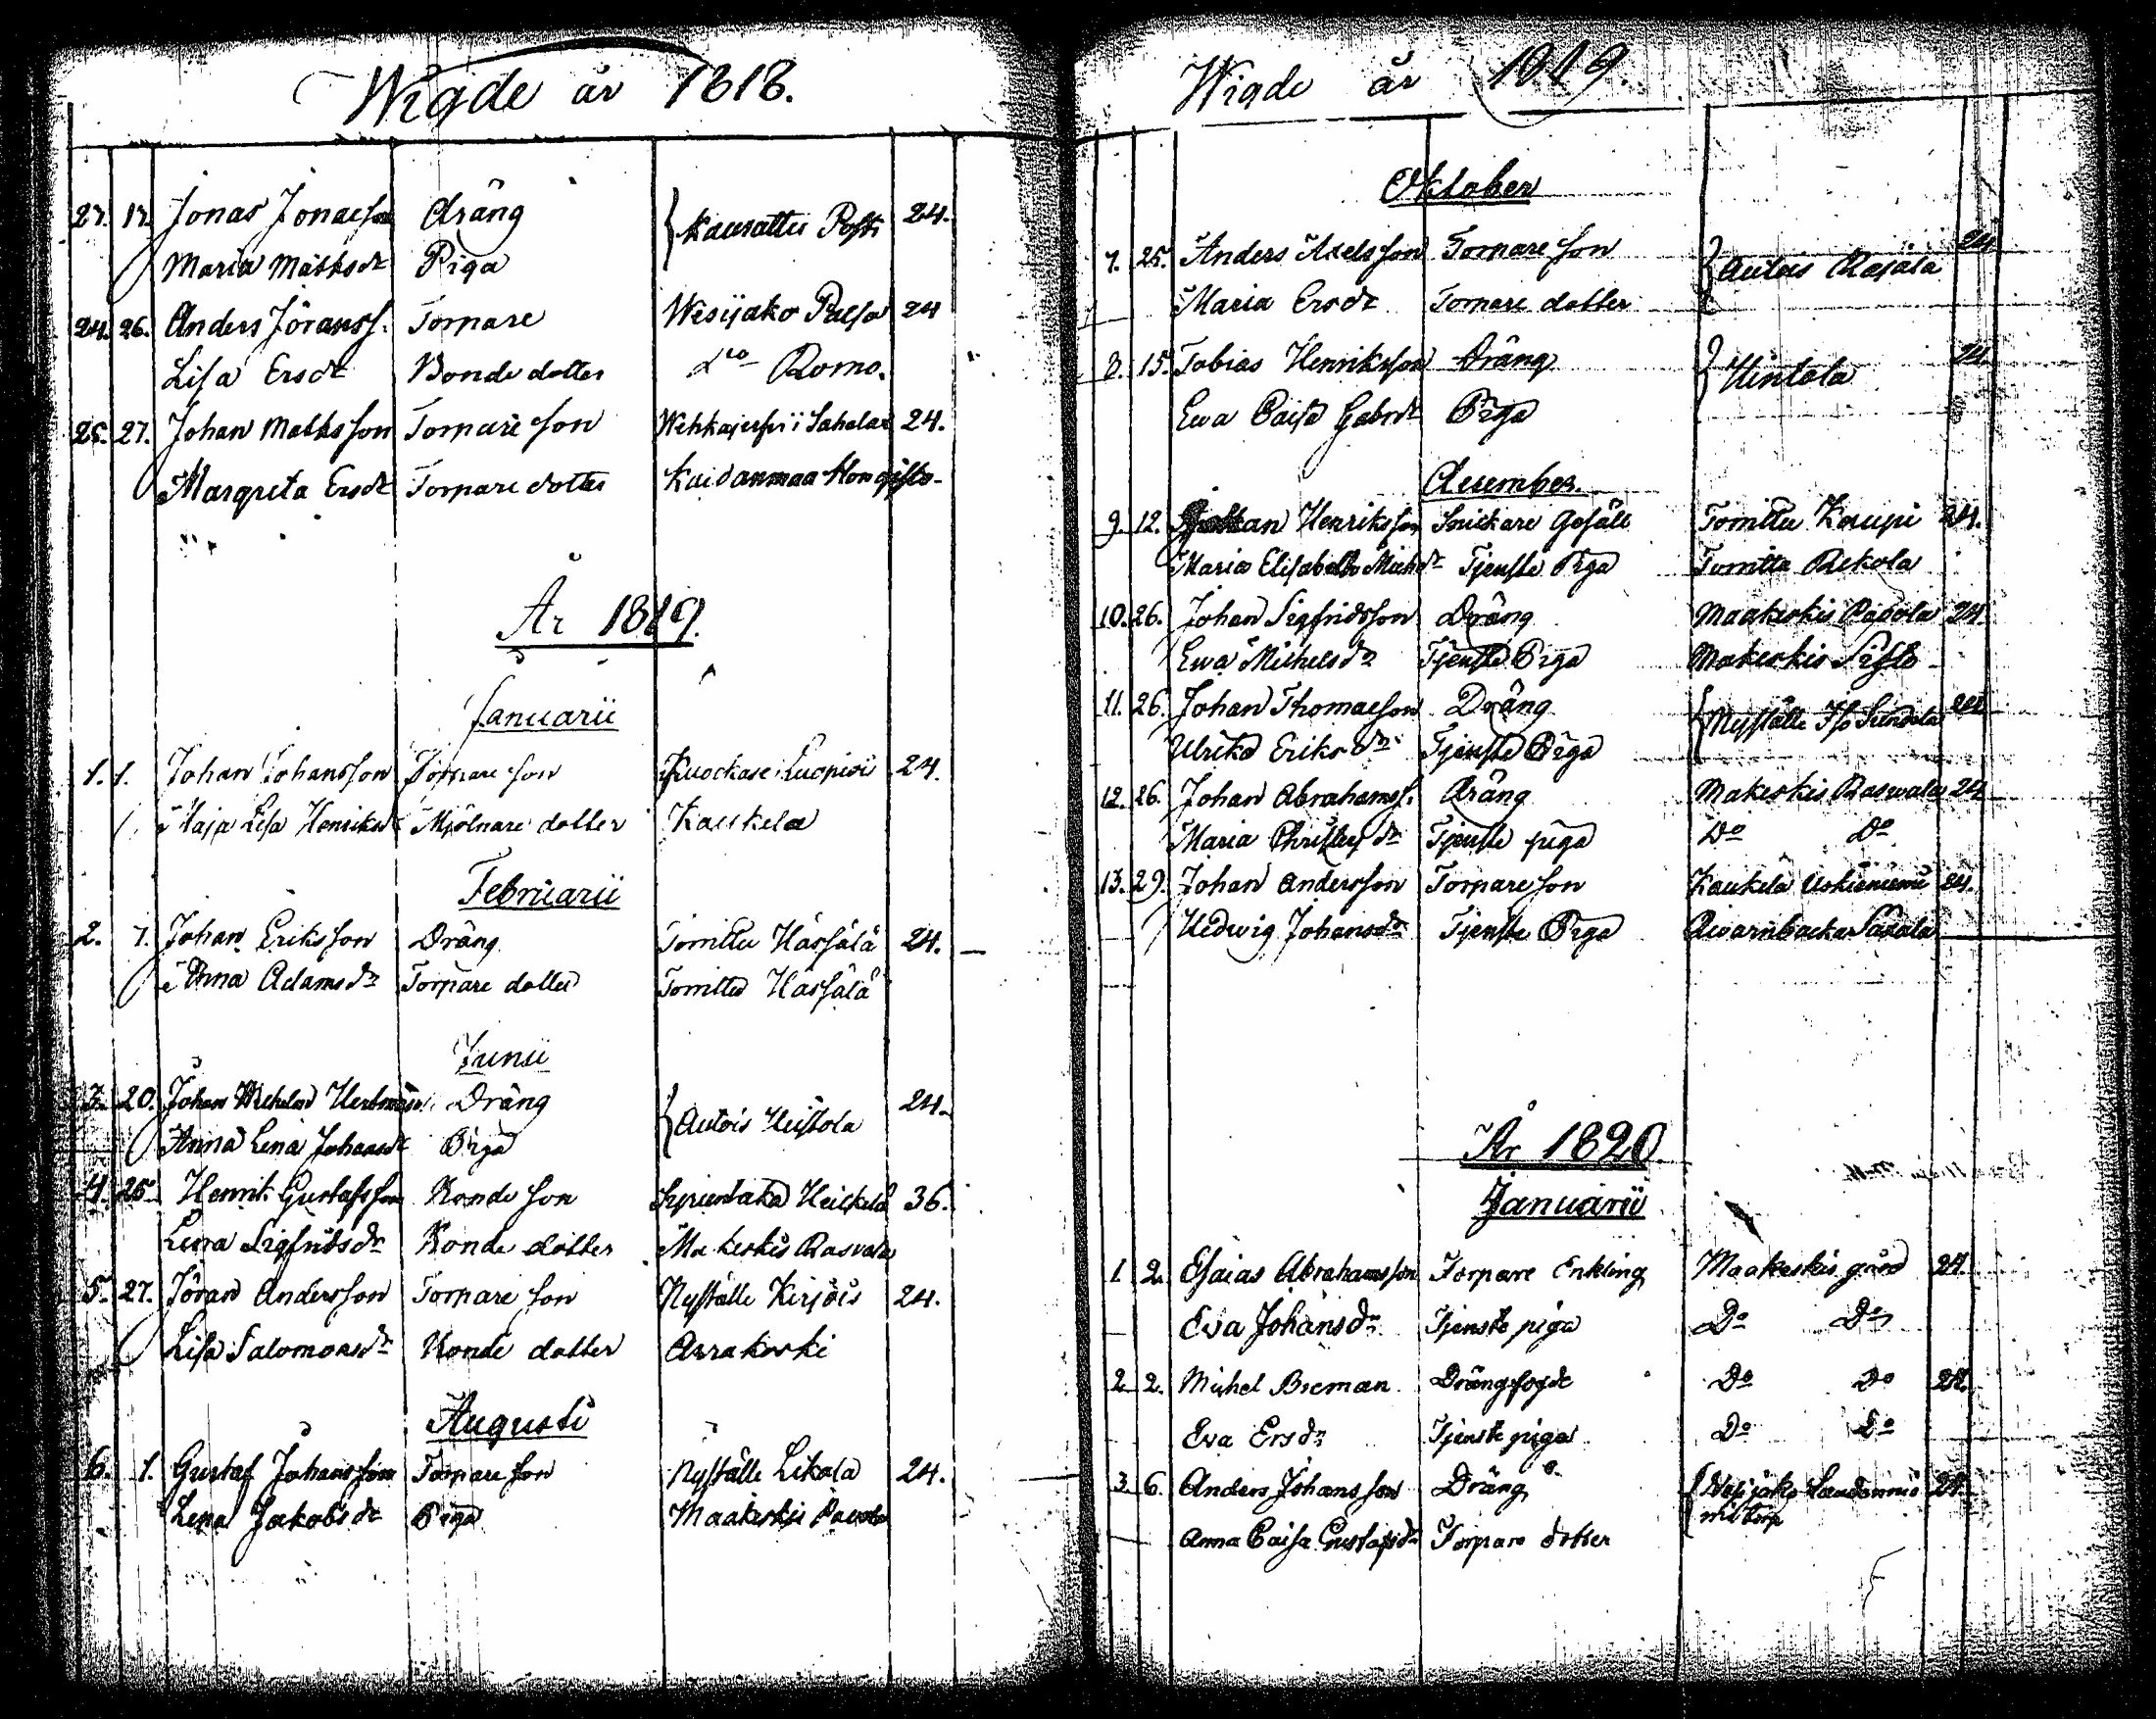 Wigde år 1818.
23. 17. Jonas Jonaeson Dräng Kaurattu Posti 24.
Maria Mattsdr Piga
24. 26. Anders Jöranss. Torpare Wesijako 24
Lisa Ersdr Bonde dotter Dto Romo.
25. 27. Johan Mattsson Torpare son 24.
Margreta Ersdr Torpare dotter Kaidanmaa Hongisto
År 1819.
Januarii
1. 1. Johan Johansson Torpare son Kuockase Luopioi 24.
Maja Lisa Henriksdr Mjölnare dotter Kaukela
Februarii
2. 7. Johan Eriksson Dräng Torrittu Hassälä 24.
Anna Adamsdr Torpare dotter Torrittu Hassälä
Junii
3. 20. Johan Dräng Autois Heistola 24.
Anna Lena Johansdr Piga
4. 25. Henrik Gustafsson Bonde son Heickelä 36.
Lena Sigfridsdr Bonde dotter Makeskis Rasvala
5. 27. Jöran Andersson Torpare son Nyställe Kirjois 24.
Lisa Salomonsdr Bonde dotter Arrakoski
Augusti
6. 1. Gustaf Johansson Torpare son Nyställe Lekola 24.
Lena Jakobsdr Piga Maakeskis
Wigde år 1819.
Oktober
7. 25. Anders Axelsson Torpare son Autois Rajala 24
Maria Ersdr Torpare dotter
8. 15. Tobias Henriksson Dräng Hintola 24.
Ewa Caisa Gabrdr Piga
December.
9. 12. Johan Henriksson Snickare Gesäll Torrittu Kaupi 24.
Maria Elisabeth Michdr Tjenste Piga Torrittu Rekola
10. 26. Johan Sigfridsson Dräng Maakeskis Papola 24.
Ewa Michelsdr Tjenste Piga Makeskis Sifto
11. 26. Johan Thomaeson Dräng Nyställe Iso Sundola 24
Ulrika Eriksdr Tjenste Piga
12. 26. Johan Abrahamss. Dräng Makeskis Raswala 24
Maria Christersdr Tjenste piga Do Do
13. 29. Johan Andersson Torpare son Kaukela Uskiniemi 24.
Hedwig Johansdr Tjenste Piga Saxala
År 1820.
Januarii
1. 2. Esaias Abrahamsson Torpare Enkling Maakeskis gård 24.
Eva Johansdr Tjenste piga Do Do
2. 2. Michel Breman Drängfogde Do Do 24.
Eva Ersdr Tjenste piga Do Do
3. 6. Anders Johansson Dräng Wesijako 24.
Anna Caisa Gustafsdr Torpare dotter